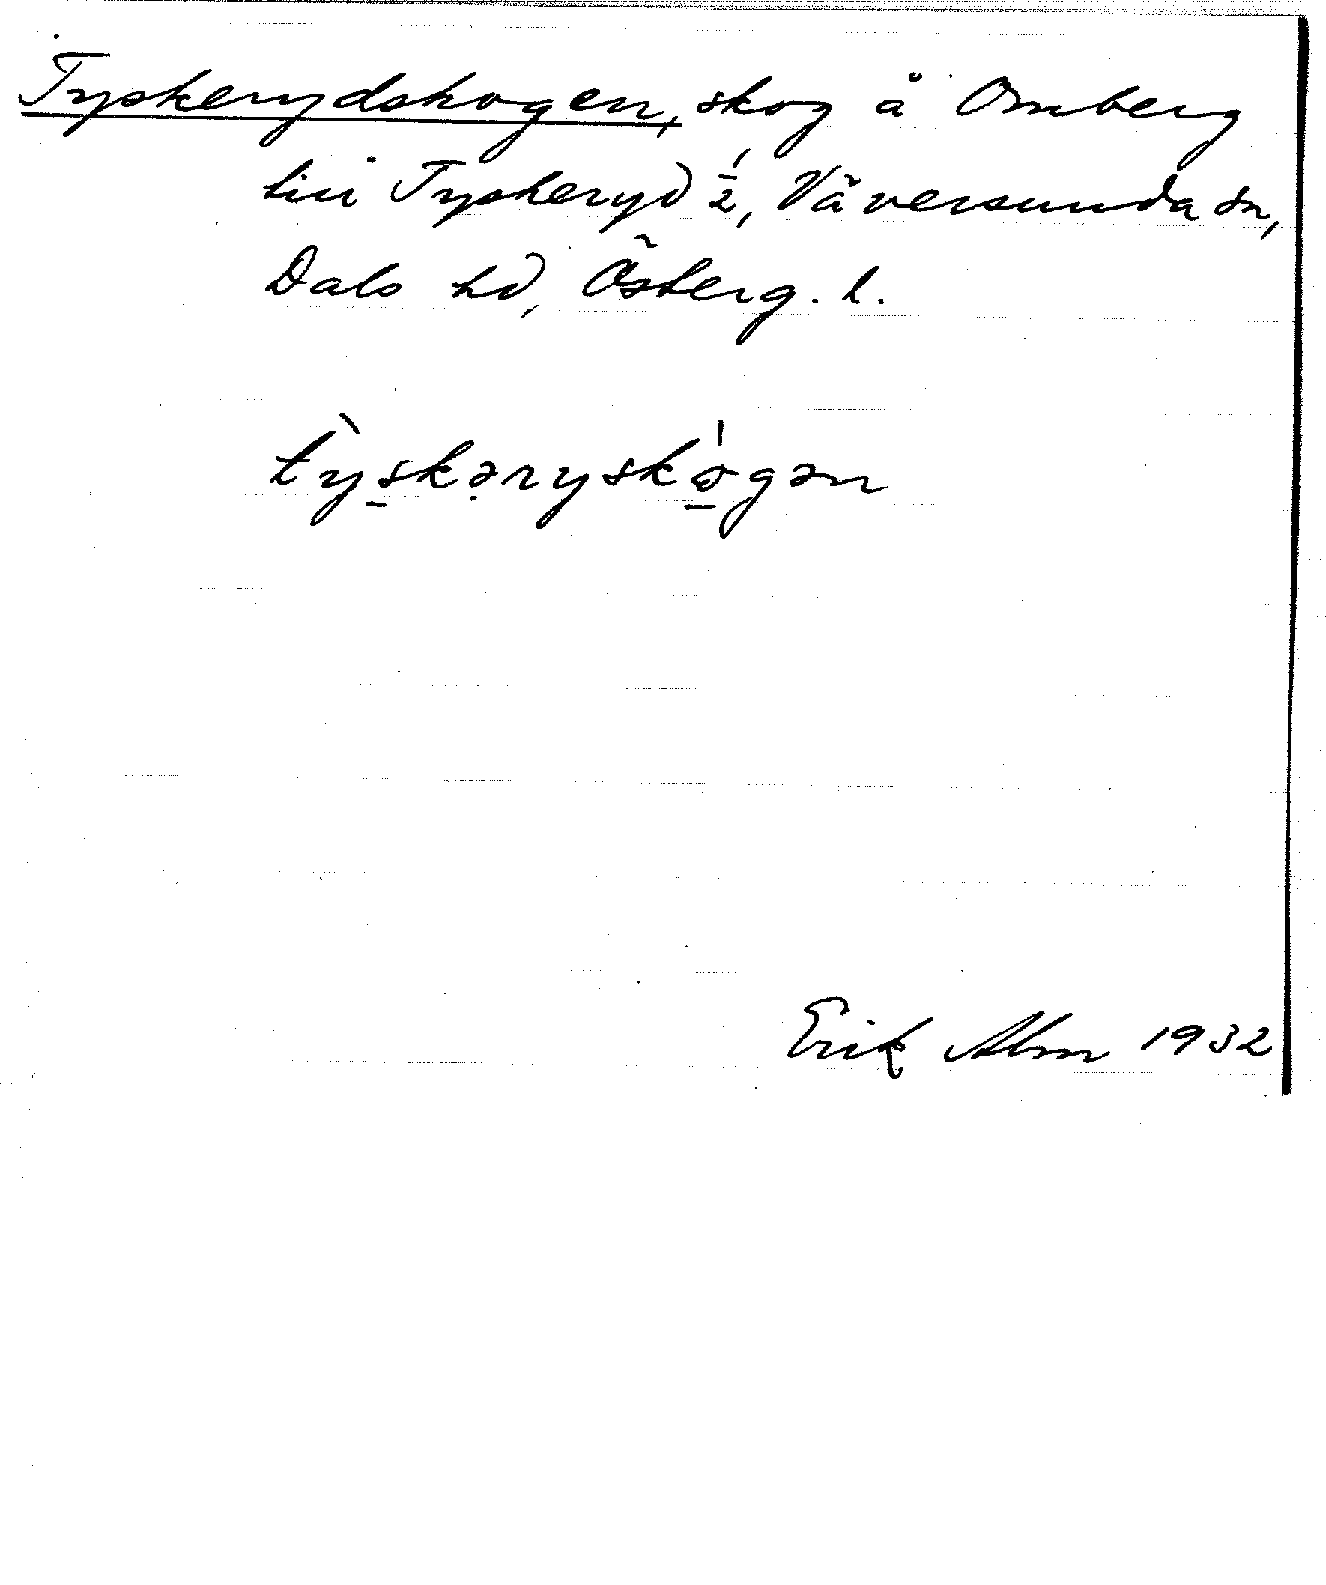 Tyskerydskogen, skog å Omberg
till Tyskeryd 1/2, Väversunda sn,
Dals hd, Österg. l.
tỳs̱kərysko̱̍gən
Erik Alm 1932